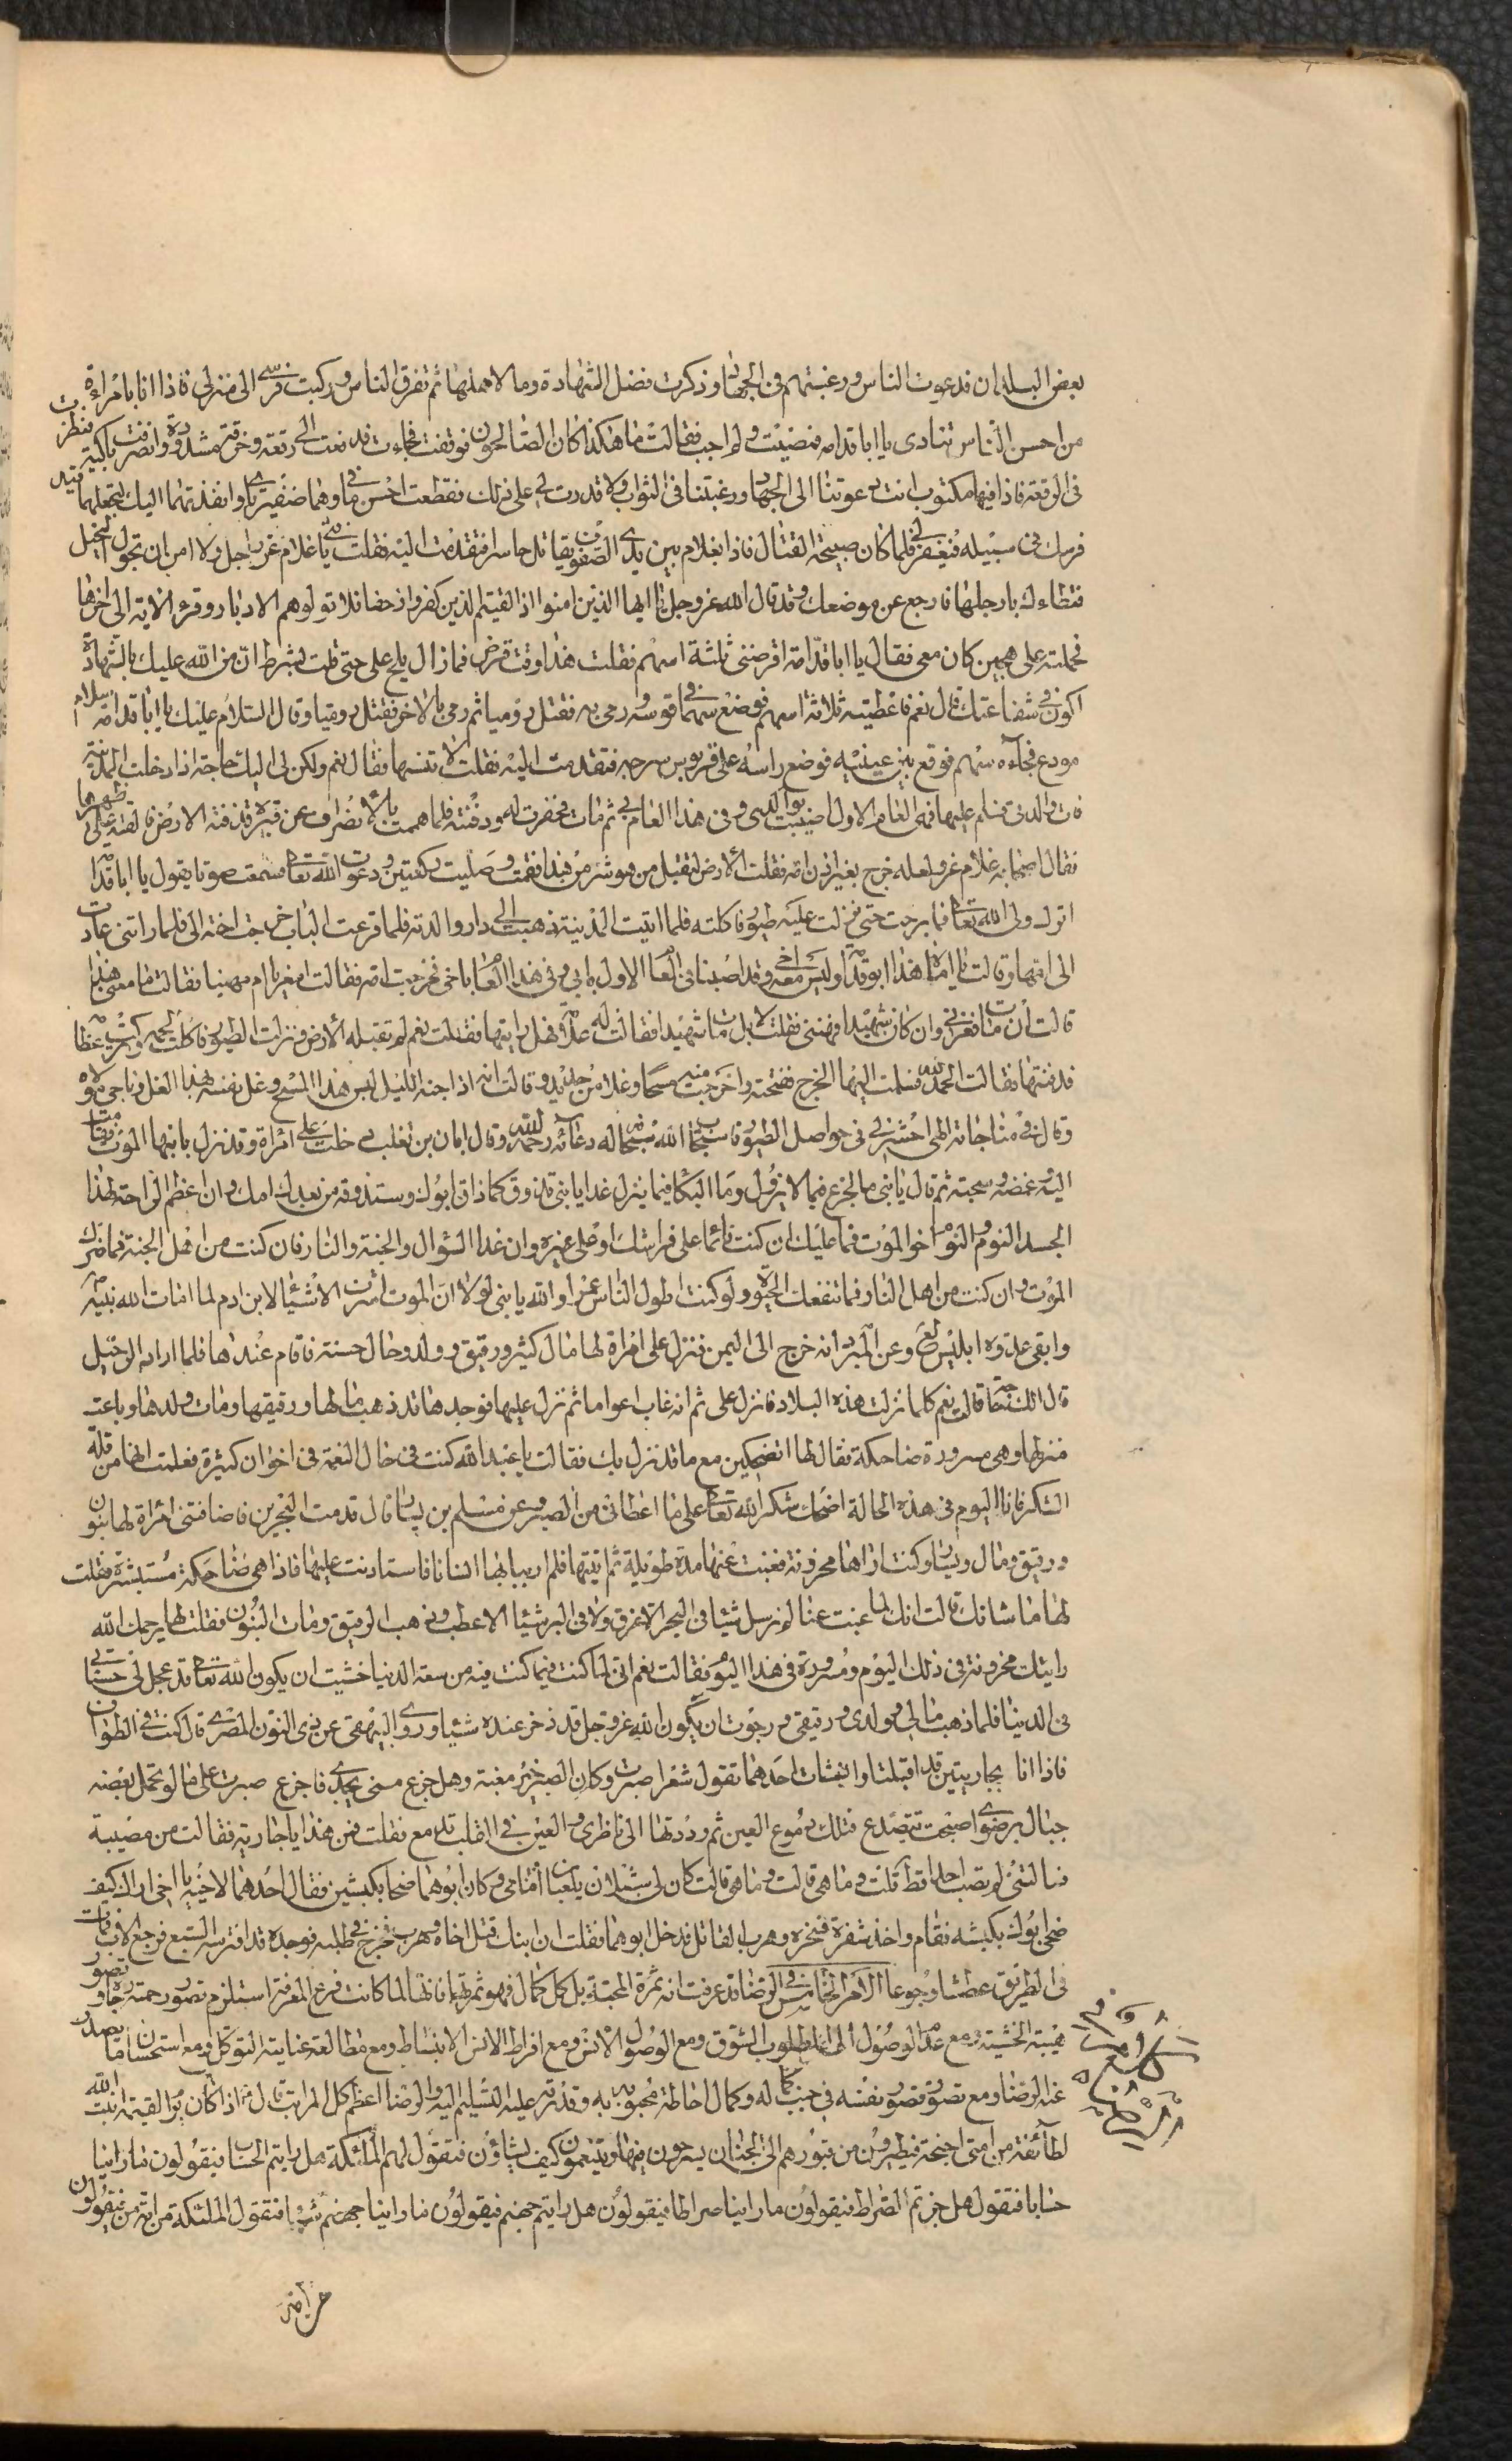 بعض البلدان فدعوت الناس ورغبتهم فى الجهاد وذكرت فضل الشهادة وما لاهلها ثم تفرق الناس وركبت فرسى الى منزلى فاذا انا بامراءة
من احسن الناس تنادى يا ابا قدامه فمضيت ولم اجب فقالت ما هكذا كان الصالحون فوقفت فجاءت فدفعت الى رقعة وخرقة مشدودة وانصرفت باكية فنظرت
فى الرقعة فاذا فيها مكتوب انت دعوتنا الى الجهاد ورغبتنا فى الثواب ولا قدرت لى على ذلك فقطعت احسن ما فى وهما ضفيرتاى وانفذتهما اليك لتجعلهما قيد
فرسك فى سبيله فيغفر لى فلما كان صبيحة القتال فاذا بغلام بين يدى الصفوف يقاتل حاسرا فتقدمت اليه فقلت يا فتى غلام غر راجل ولا امن ان تجول الخيل
فتطاءك بارجلها فارجع عن موضعك وقد قال الله عز وجل يا ايها الذين امنوا اذا لقيتم الذين كفروا زحفا فلا تولوهم الادبار وقرء الاية الى اخرها
فحملته على هجين كان معى فقال يا ابا قدامة اقرضنى ثلثة اسهم فقلت هذا وقت قرض فما زال يلح على حتى قلت بشرط ان من الله عليك بالشهادة
اكون فى شفاعتك قال نعم فاعطيته ثلاثة اسهم فوضع سهما فى قوسه ورمى به فقتل روميا ثم رمى بالاخر فقتل روميا وقال السلام عليك يا ابا قدامة سلام
مودع فجآءه سهم فوقع بين عينيه فوضع راسه على قربوس سرجه فتقدمت اليه فقلت لا تنسها فقال نعم ولكن لى اليك حاجة اذا دخلت المدينة
فات والدتى فسلم عليها فهى العام الاول اصيبت بوالدى وفى هذا العام بى ثم مات فحفرت له ودفنته فلما هممت بالانصراف عن قبره قذفته الارض فالقته على ظهرها
فقال اصحابه غلام غر ولعله خرج بغير اذن امه فقلت الارض لتقبل من هو شر من هذا فقمت وصليت ركعتين ودعوت الله تعالى فسمعت صوتا يقول يا ابا قدامة
اترك ولى الله تعالى فما برحت حتى نزلت عليه طيور فاكلته فلما اتيت المدينة ذهبت الى دار والدته فلما قرعت الباب خرجت اخته الى فلما راتنى عادت
الى امها وقالت يا اماه هذا ابو قدامة وليس معه اخى وقد اصبنا فى العام الاول بابى وفى هذا العام باخى فخرجت امه فقالت امعزيا ام مهنيا فقالت ما معنى هذا
قالت ان مات فعزنى وان كان شهيدا فهننى فقلت لا بل مات شهيدا فقالت له علامة فهل رايتها فقلت نعم لم تقبله الارض ونزلت الطيور فاكلت لحمه وتركت عظامه
فدفنتها فقالت الحمد لله فسلمت اليها الخرج ففتحته واخرجت منه مسحا وغلا من حديد وقالت انه اذا جنه الليل لبس هذا المسح وغل نفسه بهذا الغل وناجى مولاه
وقال فى مناجاته الهى احشرنى فى حواصل الطيور فاستجاب الله سبحانه له دعائه رحمه الله وقال ابان بن تغلب دخلت على امراة وقد نزل بابنها الموت فقامت
اليه وغمضه وسجته ثم قال يا بنى ما الجزع فيما لا يزول وما البكا فيما ينزل غدا يا بنى تذوق كما ذاق ابوك وستذوقه من بعدك امك وان اعظم الراحة لهذا
الجسد النوم والنوم اخو الموت فما عليك ان كنت نائما على فراشك او على غيره وان غدا السؤال والجنة والنار فان كنت من اهل الجنة فما ضرك
الموت وان كنت من اهل النار فما تنفعك الحيوة ولو كنت اطول الناس عمرا والله يا بنى لولا ان الموت اشرف الاشياء لابن ادم لما امات الله نبيه
وابقى عدوه ابليس لع وعن المبرد انه خرج الى اليمن فنزل على امراة لها مال كثير ورقيق وولد وحال حسنة فاقام عندها فلما اراد الرحيل
قال الك حاجة قالت نعم كلما نزلت هذه البلاد فانزل على ثم انه غاب اعواما ثم نزل عليها فوجدها قد ذهب مالها ورقيقها ومات ولدها وباعت
منزلها وهى مسرورة ضاحكة فقال لها اتضحكين مع ما قد نزل بك فقالت يا عبد الله كنت فى حال النعمة فى احزان كثيرة فعلمت انها من قلة
الشكر فانا اليوم فى هذه الحالة اضحك شكرا لله تعالى على ما اعطانى من الصبر وعن مسلم بن يسار قال قدمت البحرين فاضافتنى امراة لها بنون
ورقيق ومال ويسار وكنت اراها محزونة فغبت عنها مدة طويلة ثم اتيتها فلم ار ببابها انسانا فاستاذنت عليها فاذا هى ضاحكة مستبشرة فقلت
لها ما شانك قالت انك لما غبت عنا لم نرسل شيئا فى البحر الا غرق ولا فى البر شيئا الا عطب وذهب الرقيق ومات البنون فقلت لها يرحمك الله
رايتك محزونة فى ذلك اليوم ومسرورة فى هذا اليوم فقالت نعم انى لما كنت فيما كنت فيه من سعة الدنيا خشيت ان يكون الله تعالى قد عجل لى حسناتى
فى الدنيا فلما ذهب مالى وولدى ورقيقى رجوت ان يكون الله عز وجل قد ذخر عنده شيئا وروى البيهقى عن ذى النون المصرى قال كنت فى الطواف
فاذا انا بجاريتين قد اقبلتا وانشات احدهما تقول شعرا صبرت وكان الصبر خير مغبة وهل جزع منى يجدى فاجزع صبرت على ما لو تحمل بعضه
جبال برضوى اصبحت تتصدع ملكت دموع العين ثم رددتها الى ناظرى والعين فى القلب تدمع فقلت من هذا يا جارية فقالت من مصيبة
نالتنى لم تصب احدا قط قلت وما هى قالت وما هى قالت كان لى شبلان يلعبان امامى وكان ابوهما ضحا بكبشين فقال احدهما لاخيه يا اخى اراك كيف
ضحى ابوك بكبشه فقام واخذ شفرة فنحره وهرب القاتل فدخل ابوهما فقلت ان ابنك قتل اخاه وهرب فخرج فى طلبه فوجده قد افترسه السبع فرجع الاب فمات
فى الطريق عطشا وجوعا الامر الخامس فى الرضا قد عرفت انه ثمرة المحبة بل كل كمال فهو ثمرتها فانها لما كانت فرع المعرفة استلزم تصور رحمته رجاؤه وتصور
هيبته الخشية ومع عدم الوصول الى المطلوب الشوق ومع الوصول الانس ومع افراط الانس الانبساط ومع مطالعة عنايته التوكل ومع استحسان ما يصدر
عنه الرضا ومع تصور قصور نفسه فى جنب كماله وكمال احاطة محبوبه به وقدرته عليه التسليم اليه والرضا اعظم كل المراتب قال ص اذا كان يوم القيمة انبت الله
لطآئفة من امتى اجنحة فيطيرون من قبورهم الى الجنان يسرحون فيها ويتنعمون كيف يشاؤن فتقول لهم الملئكة هل رايتم الحساب فيقولون ما راينا
حسابا فتقول هل جزتم الصراط فيقولون ما راينا صراطا فيقولون هل رايتم جهنم فيقولون ما راينا جهنم شيئا فتقول الملئكة من امة من فيقولون
من امة